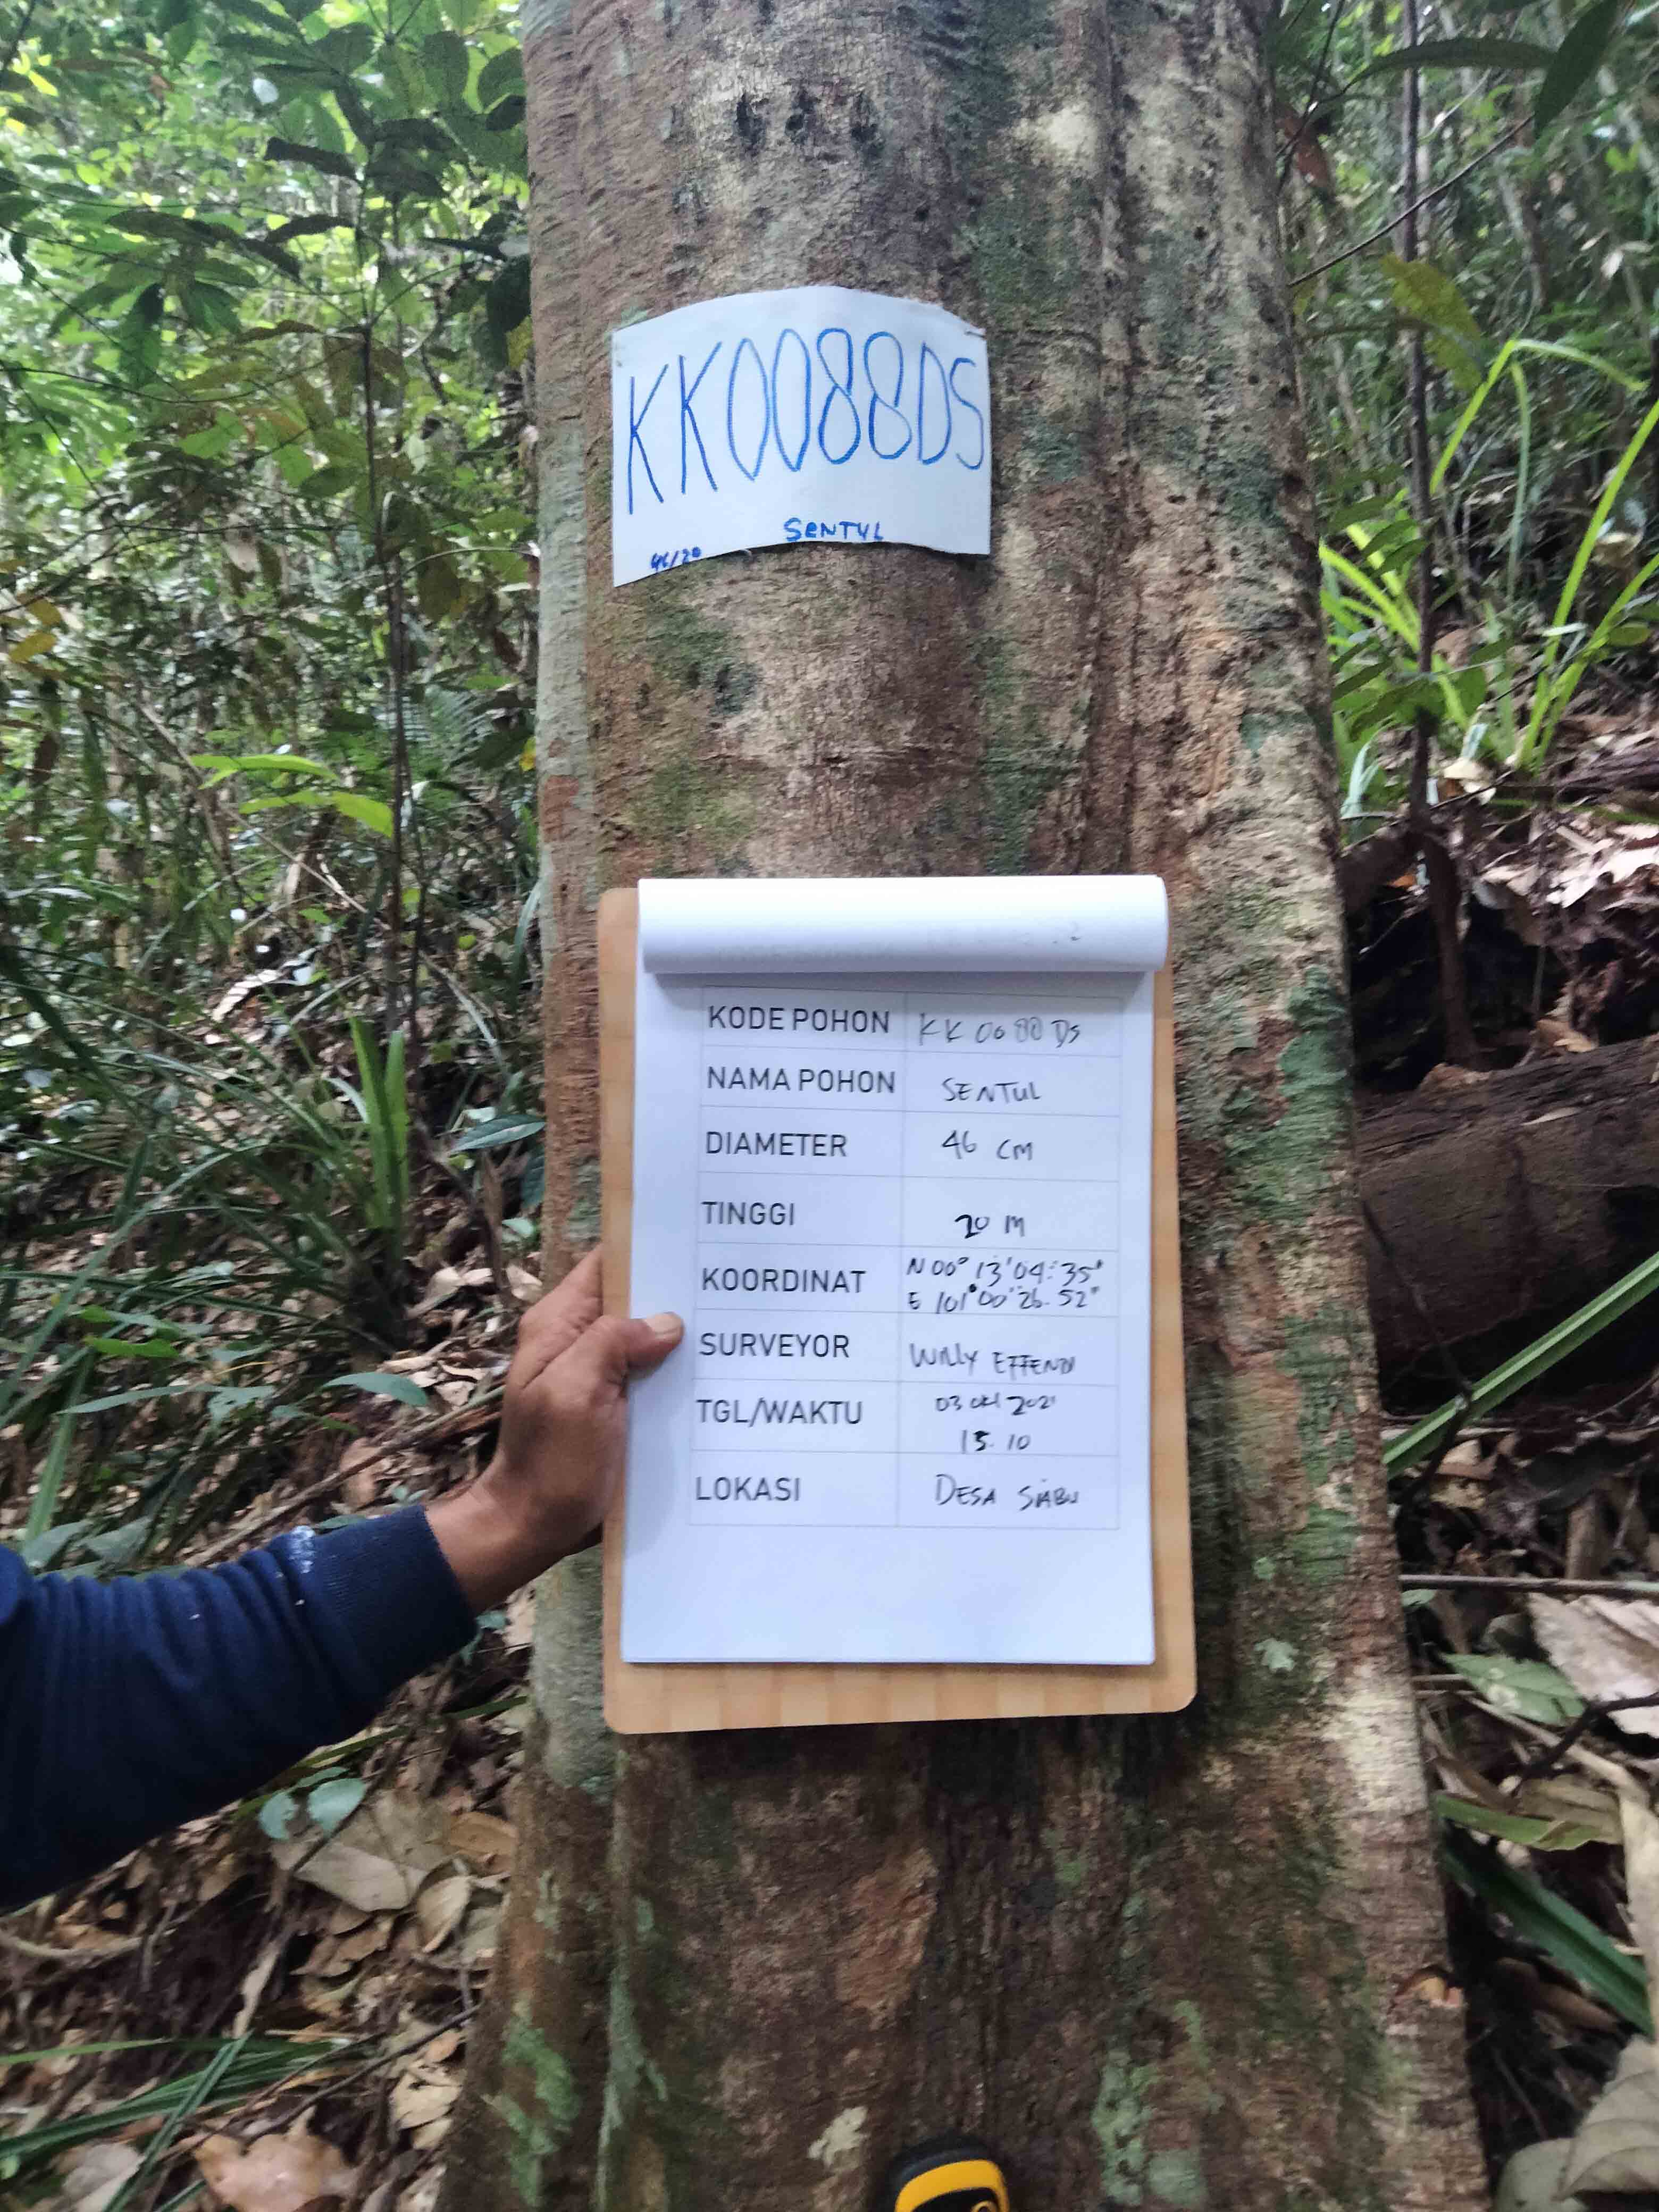 KK0088DS
SENTUL
46/20
KODE POHON KK 0088 DS
NAMA POHON SENTUL
DIAMETER 46 CM
TINGGI 20 M
KOORDINAT N 00° 13' 04.35"
E 101° 00' 26.52"
SURVEYOR WILLY EFFENDI
TGL/WAKTU 03 okt 2021
15.10
LOKASI DESA SIABU